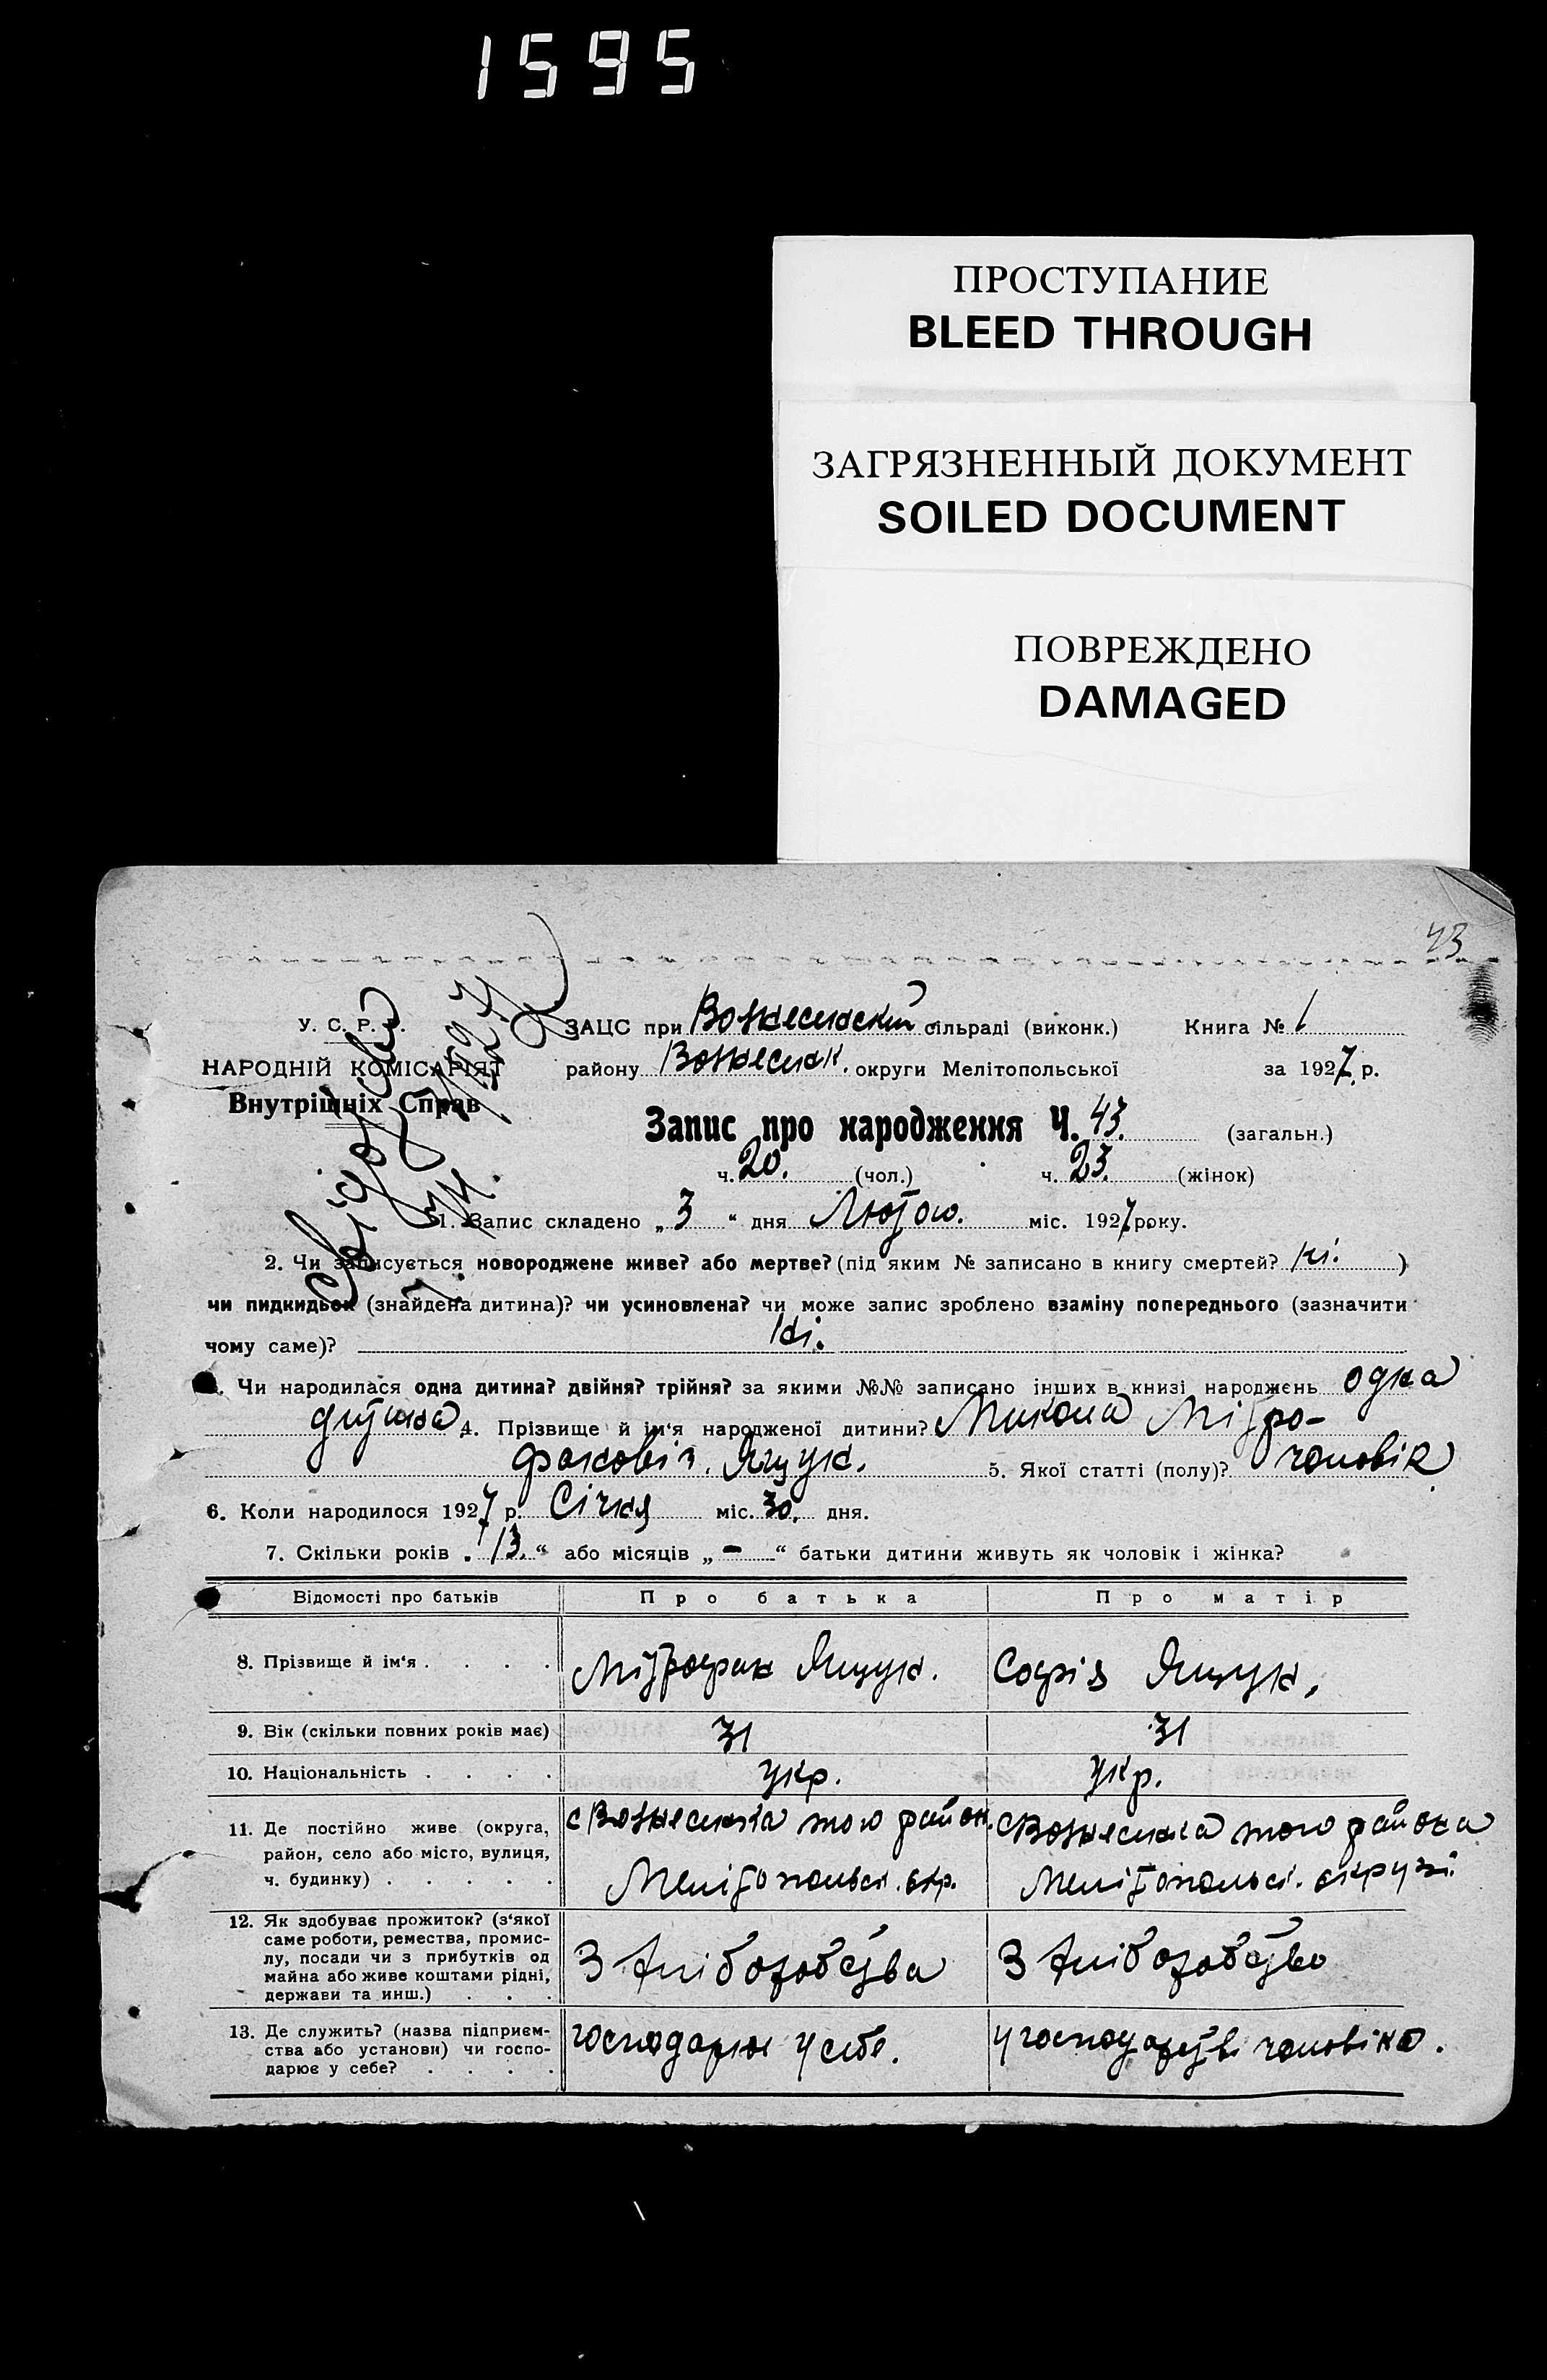 1595
ПРОСТУПАНИЕ
BLEED THROUGH
ЗАГРЯЗНЕННЫЙ ДОКУМЕНТ
SOILED DOCUMENT
ПОВРЕЖДЕНО
DAMAGED
43
У. С. Р. Р.
НАРОДНІЙ КОМІСАРІЯТ
Внутрішніх Справ
ЗАЦС при Вознесенскій сільраді (виконк.) Книга № 1
району Вознесен. округи Мелітопольської за 1927 р.
Запис про народження Ч. 43. (загальн.)
ч. 20. (чол.) ч. 23. (жінок)
1. Запис складено „ 3 “ дня Лютого. міс. 1927 року.
2. Чи записується новороджене живе? або мертве? (під яким № записано в книгу смертей? ні. )
чи пидкидьок (знайдена дитина)? чи усиновлена? чи може запис зроблено взаміну попереднього (зазначити
чому саме)? Ні.
Чи народилася одна дитина? двійня? трійня? за якими №№ записано інших в книзі народжень одна
дитина 4. Прізвище й ім'я народженої дитини? Микола Мітро-
фанович. Ящук. 5. Якої статті (полу)? чоловік
6. Коли народилося 1927 р. Січня міс. 30. дня.
7. Скільки років „ 13. “ або місяців „ - “ батьки дитини живуть як чоловік і жінка?
Відомості про батьків Про батька Про матір
8. Прізвище й ім'я . . . . Мітрофан Ящук. Софія Ящук.
9. Вік (скільки повних років має) 31 31
10. Національність . . . . укр. укр.
11. Де постійно живе (округа,
район, село або місто, вулиця,
ч. будинку) . . . . .
с Вознесенка того район.
Мелітопольск. окр.
с Вознесенка того района
Мелітопольск. округи
12. Як здобуває прожиток? (з'якої
саме роботи, ремества, промис-
лу, посади чи з прибутків од
майна або живе коштами рідні,
держави та инш.) . . .
З хліборобства
З хліборобство
13. Де служить? (назва підприєм-
ства або установи) чи госпо-
дарює у себе? . . . .
господарює у себе.
у господарстві чоловіка.